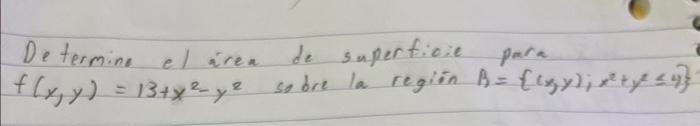 Determine el área de superficie para
f(x,y) = 13+x²-y² sobre la región B = {(x,y); x²+y² ≤ 4}